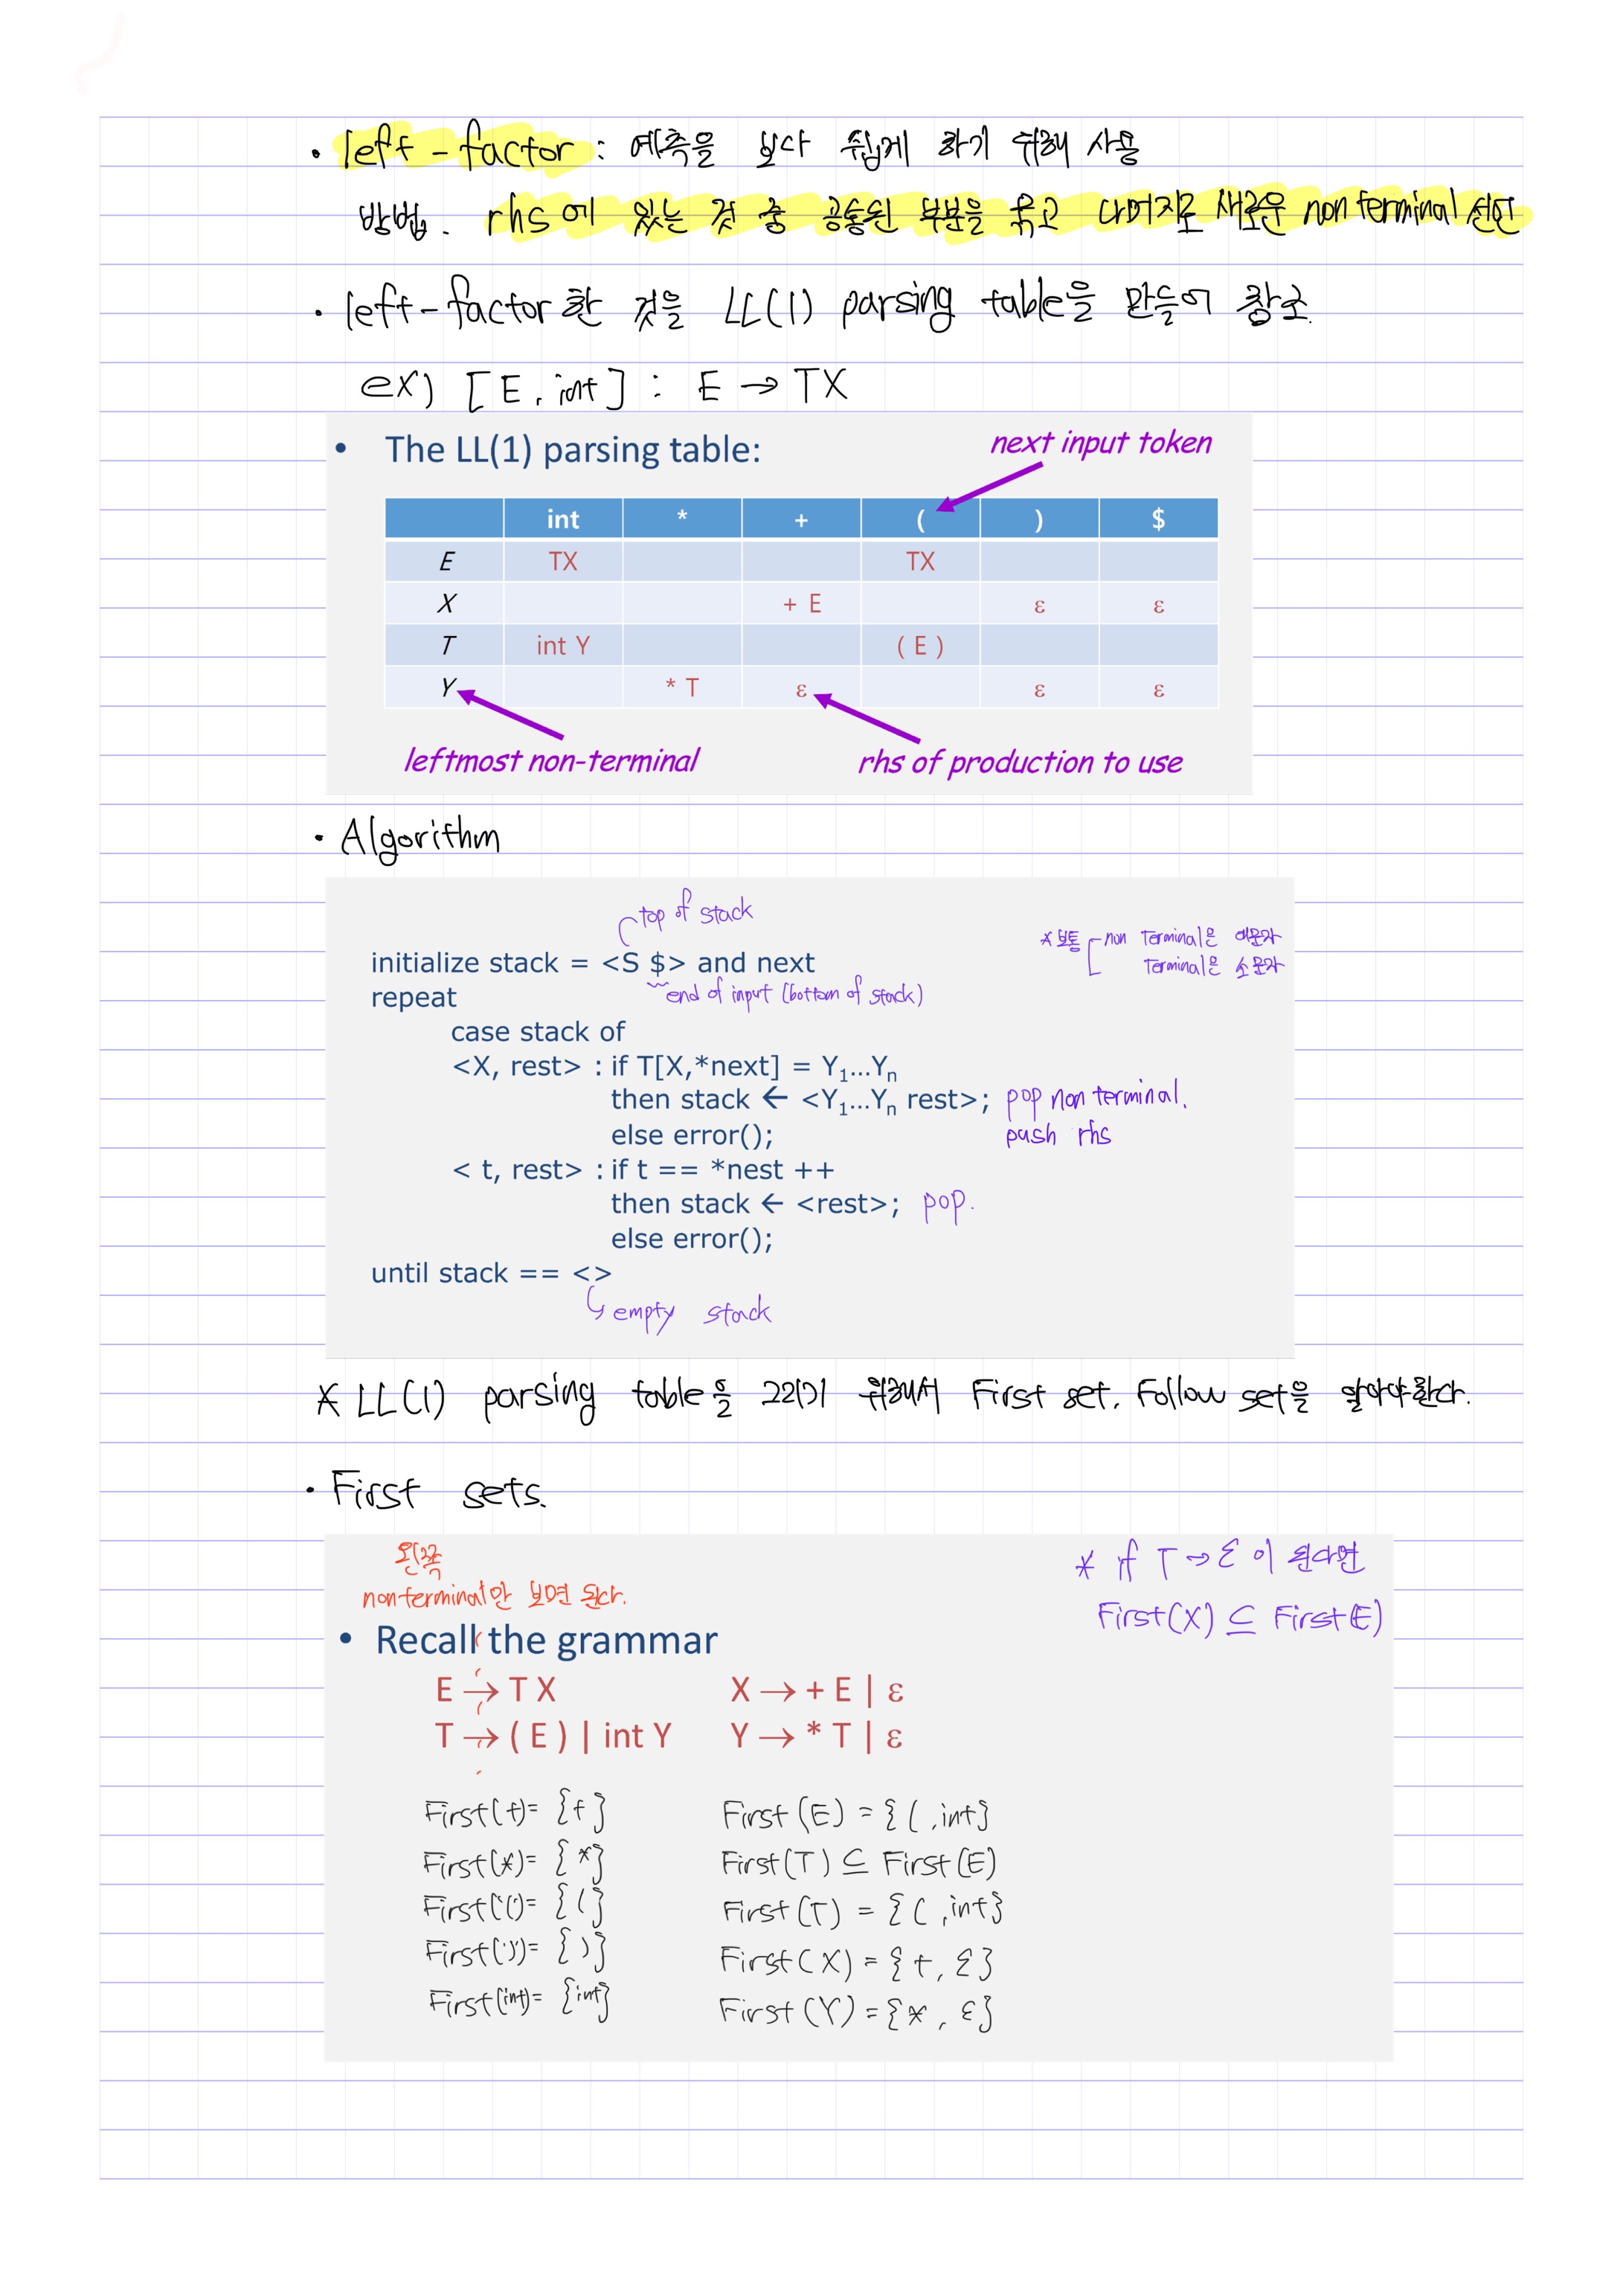 • left-factor : 예측을 보다 쉽게 하기 위해 사용
방법. rhs에 있는 것 중 공통된 부분을 묶고 나머지로 새로운 non terminal 선언
• left-factor한 것을 LL(1) parsing table을 만들어 참조.
ex) [E, int] : E → TX
• The LL(1) parsing table:
next input token
int * + ( ) $
E TX TX
X + E ε ε
T int Y ( E )
Y * T ε ε ε
leftmost non-terminal
rhs of production to use
• Algorithm
top of stack
* 보통 non terminal은 대문자
terminal은 소문자
initialize stack = <S $> and next
end of input (bottom of stack)
repeat
case stack of
<X, rest> : if T[X,*next] = Y1…Yn
then stack ← <Y1…Yn rest>; pop non terminal.
else error(); push rhs
< t, rest> : if t == *nest ++
then stack ← <rest>; pop.
else error();
until stack == <>
empty stack
* LL(1) parsing table을 그리기 위해서 First set, Follow set을 알아야한다.
• First sets.
왼쪽
non terminal만 보면 된다.
* if T → ε 이 된다면
First(X) ⊆ First(E)
• Recall the grammar
E → T X X → + E | ε
T → ( E ) | int Y Y → * T | ε
First(+) = {+} First(E) = { (, int}
First(*) = {*} First(T) ⊆ First(E)
First('(') = {(} First(T) = { (, int}
First(')') = {)} First(X) = {+, ε}
First(int) = {int} First(Y) = {*, ε}